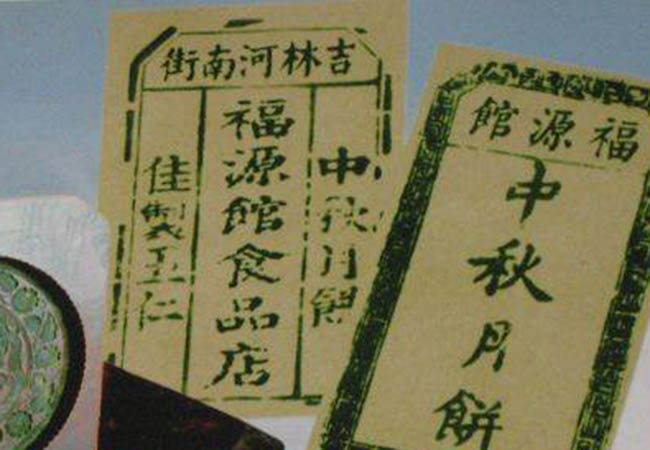 吉林河南街
中秋月餅
福源館食品店
佳製五仁
福源館
中秋月餅